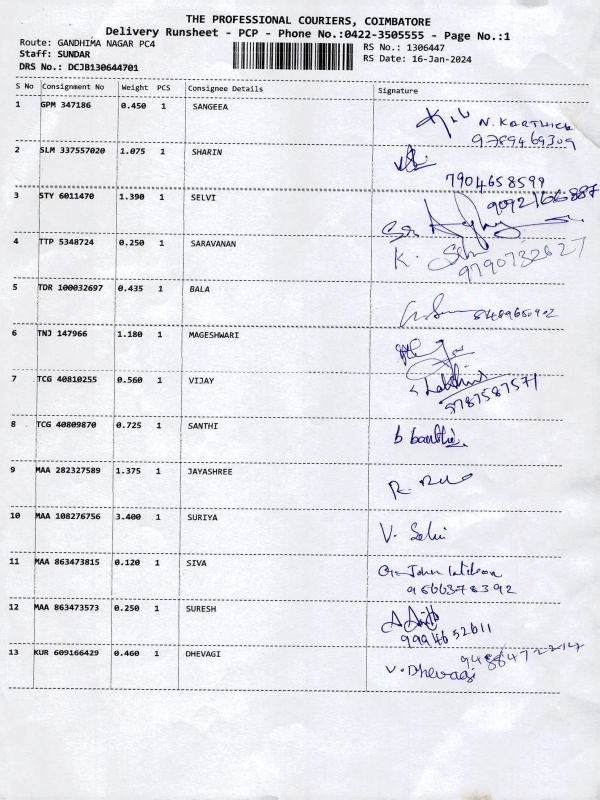 THE PROFESSIONAL COURIERS, COIMBATORE
Delivery Runsheet - PCP - Phone No.:0422-3505555 - Page No.:1
Route: GANDHIMA NAGAR PC4
RS No.: 1306447
Staff: SUNDAR
RS Date: 16-Jan-2024
DRS No.: DCJB130644701
S No Consignment No Weight PCS Consignee Details Signature
1 GPM 347186 0.450 1 SANGEEA
N. KARTHICK
9789469309
2 SLM 337557020 1.075 1 SHARIN
7904658599
3 STY 6011470 1.390 1 SELVI
9092166887
4 TTP 5348724 0.250 1 SARAVANAN
K.
9790732627
5 TDR 100032697 0.435 1 BALA
6 TNJ 147966 1.180 1 MAGESHWARI
7 TCG 40810255 0.560 1 VIJAY
8787587571
8 TCG 40809870 0.725 1 SANTHI
9 MAA 282327589 1.375 1 JAYASHREE
10 MAA 108276756 3.400 1 SURIYA
V. Selvi
11 MAA 863473815 0.120 1 SIVA
9566378392
12 MAA 863473573 0.250 1 SURESH
9994652611
13 KUR 609166429 0.460 1 DHEVAGI
V. Dhevagi